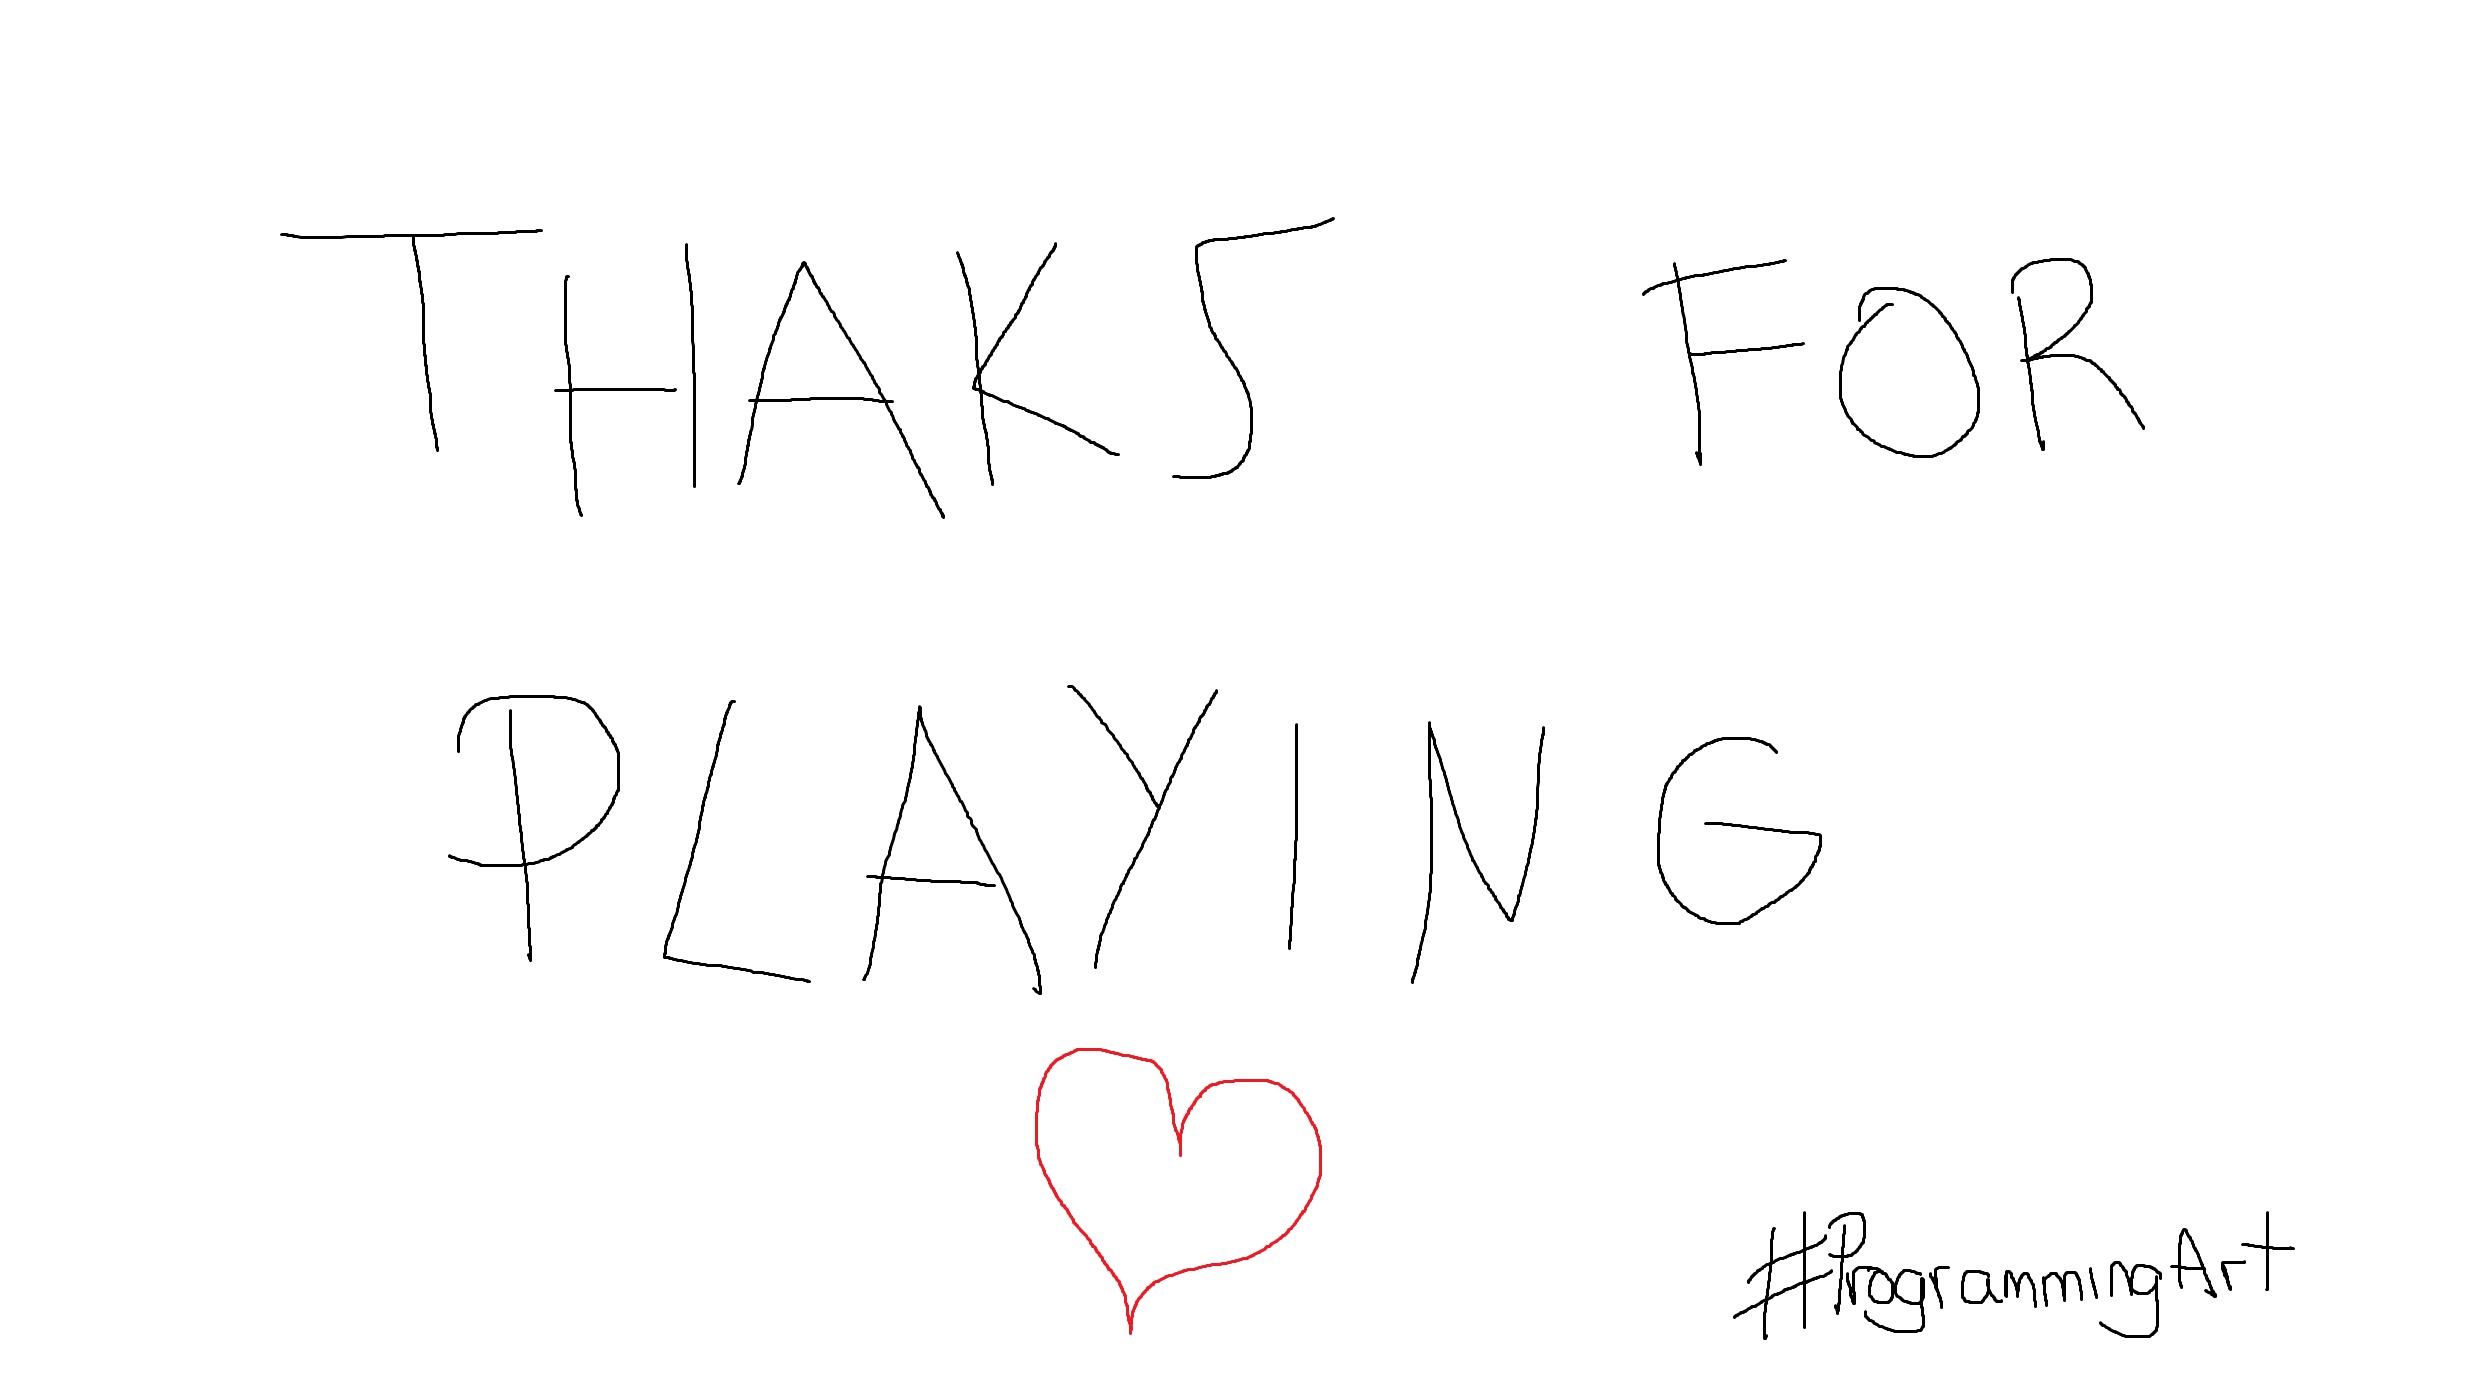 THAKS FOR
PLAYING
#ProgrammingArt